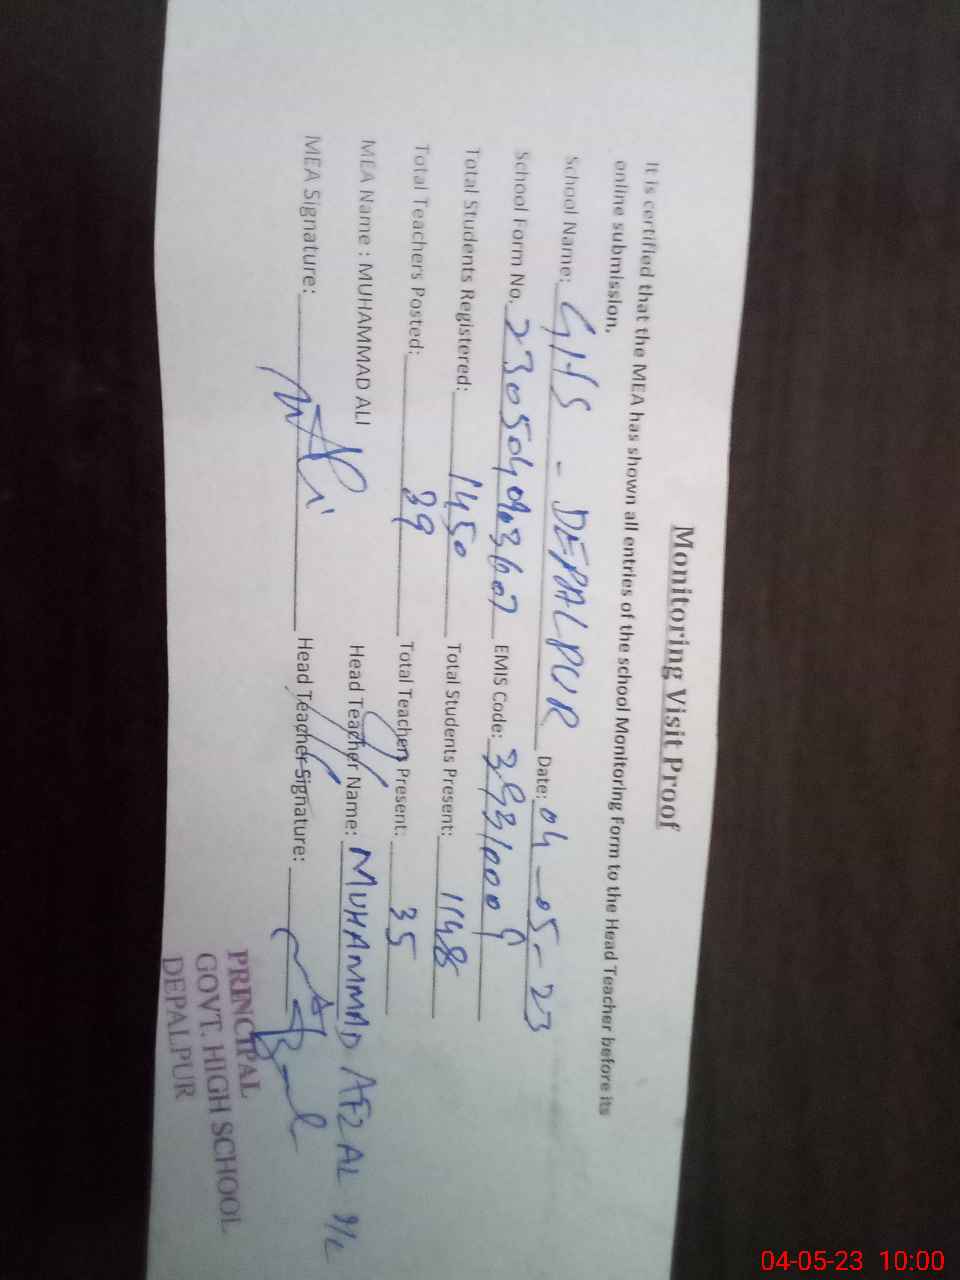 Monitoring Visit Proof
It is certified that the MEA has shown all entries of the school Monitoring Form to the Head Teacher before its
online submission.
School Name: GHS - DEPALPUR Date: 04-05-23
School Form No. EMIS Code:
Total Students Registered: 1450 Total Students Present: 1148
Total Teachers Posted: 39 Total Teachers Present: 35
MEA Name : MUHAMMAD ALI Head Teacher Name: MUHAMMAD AFZAL
MEA Signature: Head Teacher Signature:
PRINCIPAL
GOVT. HIGH SCHOOL
DEPALPUR
04-05-23 10:00